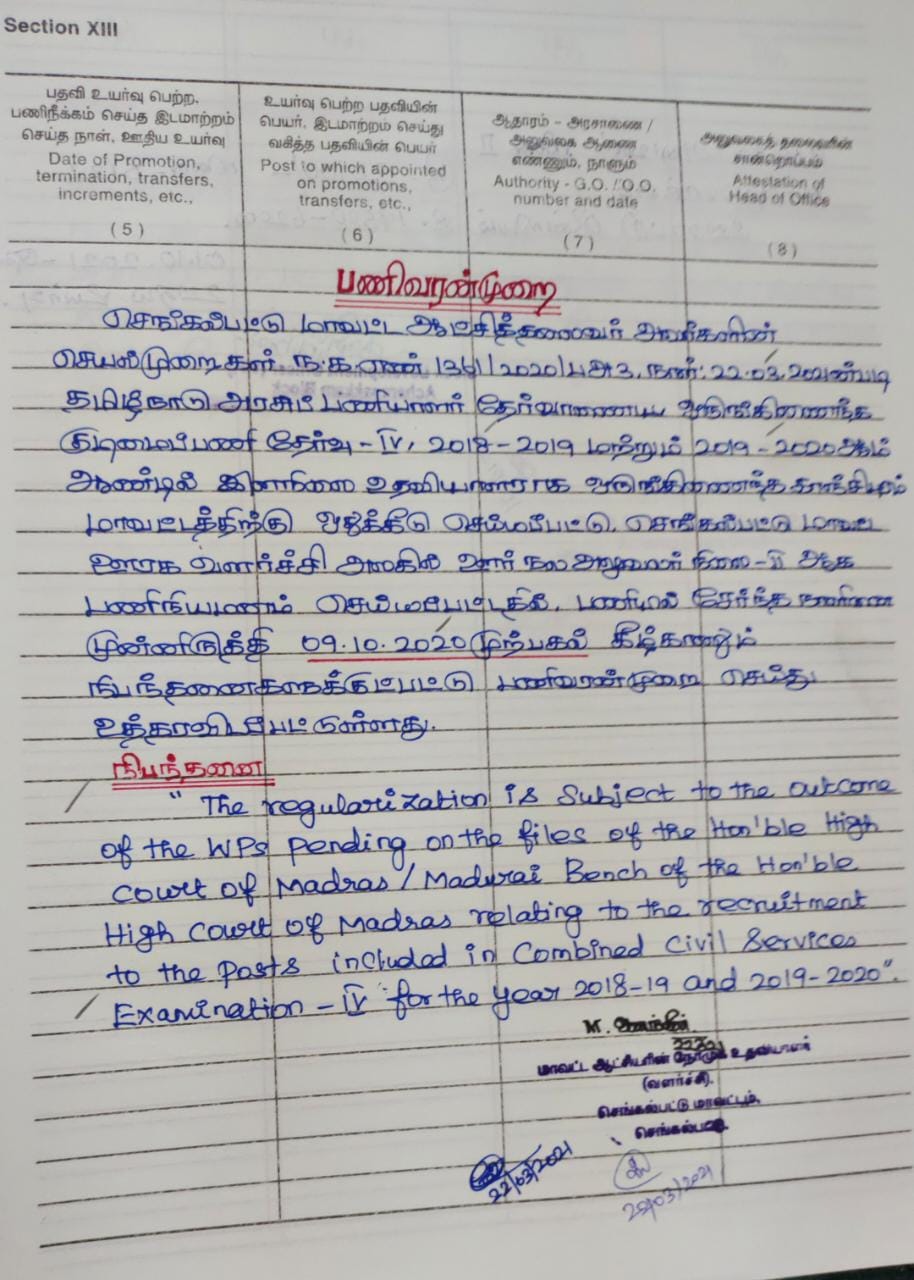 Section XIII
பதவி உயர்வு பெற்ற,
பணிநீக்கம் செய்த இடமாற்றம்
செய்த நாள், ஊதிய உயர்வு
Date of Promotion,
termination, transfers,
increments, etc.,
(5)
உயர்வு பெற்ற பதவியின்
பெயர், இடமாற்றம் செய்து
வகித்த பதவியின் பெயர்
Post to which appointed
on promotions,
transfers, etc.,
(6)
ஆதாரம் - அரசாணை /
அலுவலக ஆணை
எண்ணும், நாளும்
Authority - G.O. / O.O.
number and date
(7)
அலுவலகத் தலைவரின்
சான்றொப்பம்
Attestation of
Head of Office
(8)
பணிவரன்முறை
செங்கல்பட்டு மாவட்ட ஆட்சித்தலைவர் அவர்களின்
செயல்முறைகள் ந.க.எண் 1361/2020/பஅ3, நாள்: 22.03.2021ன்படி
தமிழ்நாடு அரசுப் பணியாளர் தேர்வாணைய ஒருங்கிணைந்த
குடிமைப்பணி தேர்வு-IV, 2018-2019 மற்றும் 2019-2020ஆம்
ஆண்டில் இளநிலை உதவியாளராக ஒருங்கிணைந்த காஞ்சிபுரம்
மாவட்டத்திற்கு ஒதுக்கீடு செய்யப்பட்டு, செங்கல்பட்டு மாவட்ட
ஊரக வளர்ச்சி அலகில் ஊர் நல அலுவலர் நிலை-II ஆக
பணிநியமனம் செய்யப்பட்டதில், பணியில் சேர்ந்த நாளினை
முன்னிறுத்தி 09.10.2020 முற்பகல் கீழ்காணும்
நிபந்தனைகளுக்குட்பட்டு பணிவரன்முறை செய்து
உத்தரவிடப்பட்டுள்ளது.
நிபந்தனை
" The regularization is subject to the outcome
of the WPs pending on the files of the Hon'ble High
Court of Madras / Madurai Bench of the Hon'ble
High Court of Madras relating to the recruitment
to the posts included in Combined Civil Services
Examination - IV for the year 2018-19 and 2019-2020".
மாவட்ட ஆட்சியரின் நேர்முக உதவியாளர்
(வளர்ச்சி),
செங்கல்பட்டு மாவட்டம்,
செங்கல்பட்டு.
22/03/2021